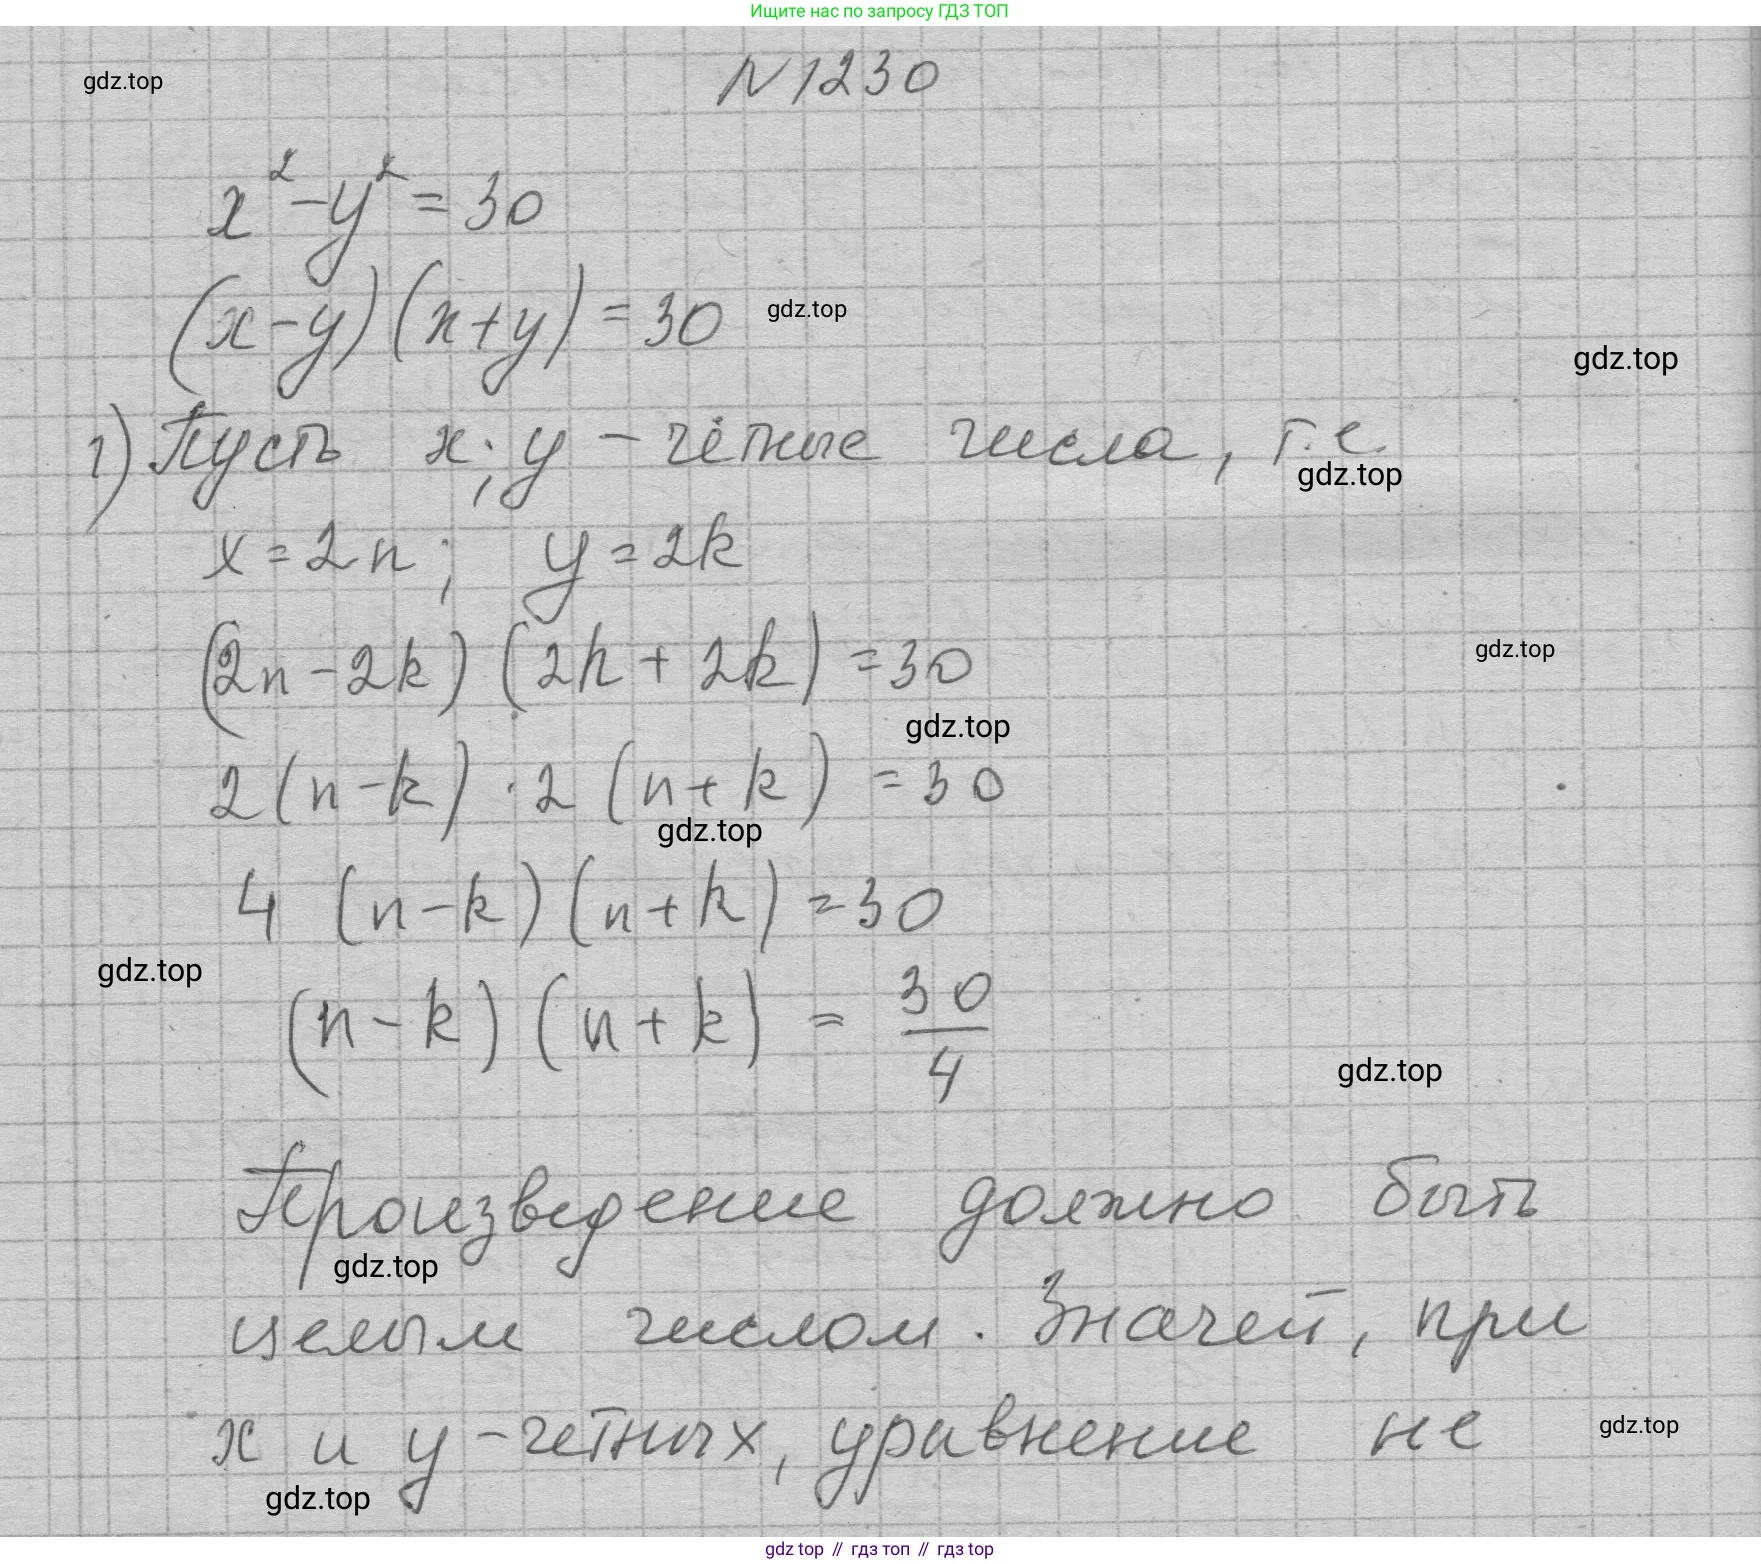 Ищите нас по запросу ГДЗ ТОП
N 1230
gdz.top
x² - y² = 30
(x-y)(x+y) = 30
gdz.top
gdz.top
1) Пусть x; y - чётные числа, т.е.
gdz.top
x = 2n; y = 2k
(2n - 2k) (2n + 2k) = 30
gdz.top
gdz.top
2(n-k) · 2 (n+k) = 30
gdz.top
4 (n-k)(n+k) = 30
gdz.top
(n-k) (n+k) = 30/4
gdz.top
Произведение должно быть
gdz.top
целым числом. Значей, при
x и y - четных, уравнение не
gdz.top
gdz.top
gdz top // гдз топ // гдз top